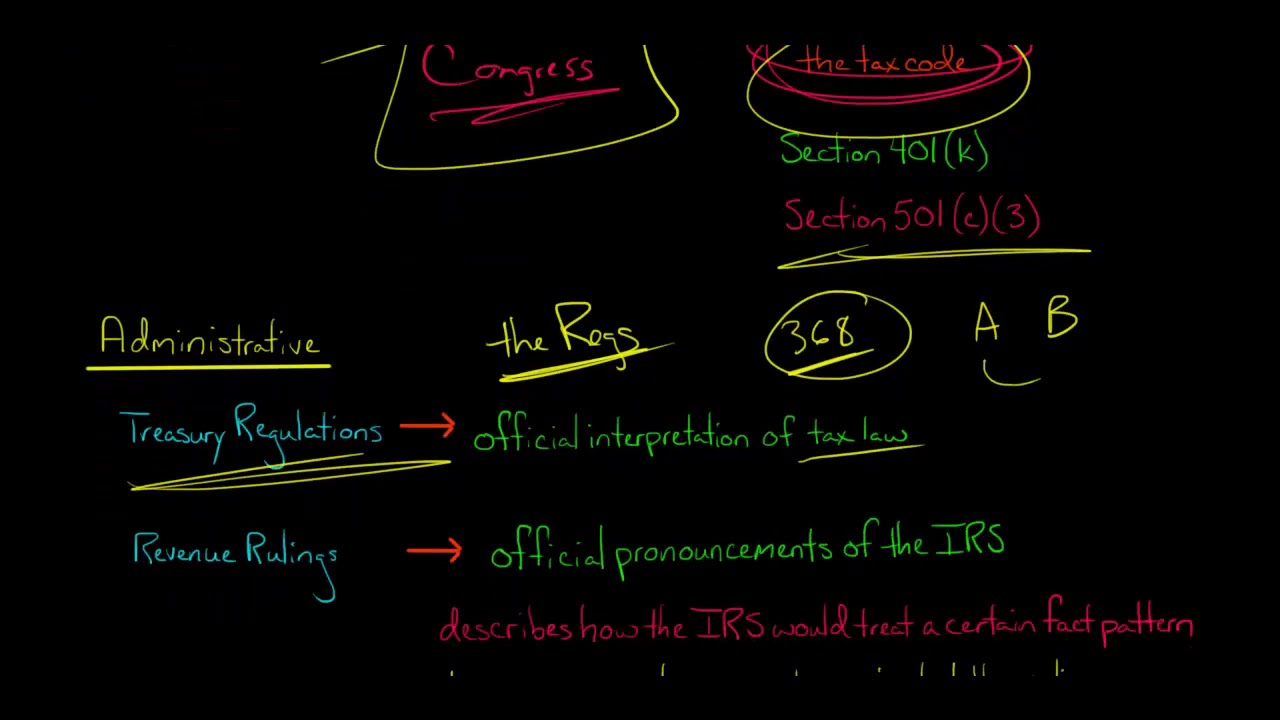 Congress
the tax code
Section 401(k)
Section 501(c)(3)
Administrative
the Regs
368
A B
Treasury Regulations → official interpretation of tax law
Revenue Rulings → official pronouncements of the IRS
describes how the IRS would treat a certain fact pattern